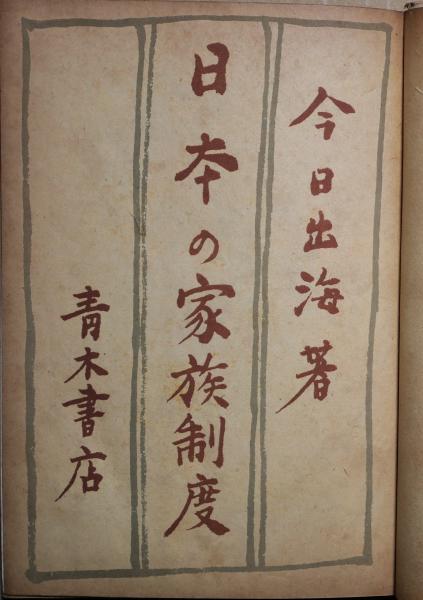 今日出海著
日本の家族制度
青木書店